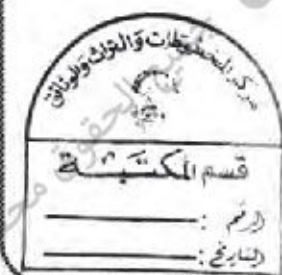 مركز المخطوطات والتراث والوثائق
قسم المكتبة
الرقم :
التاريخ :